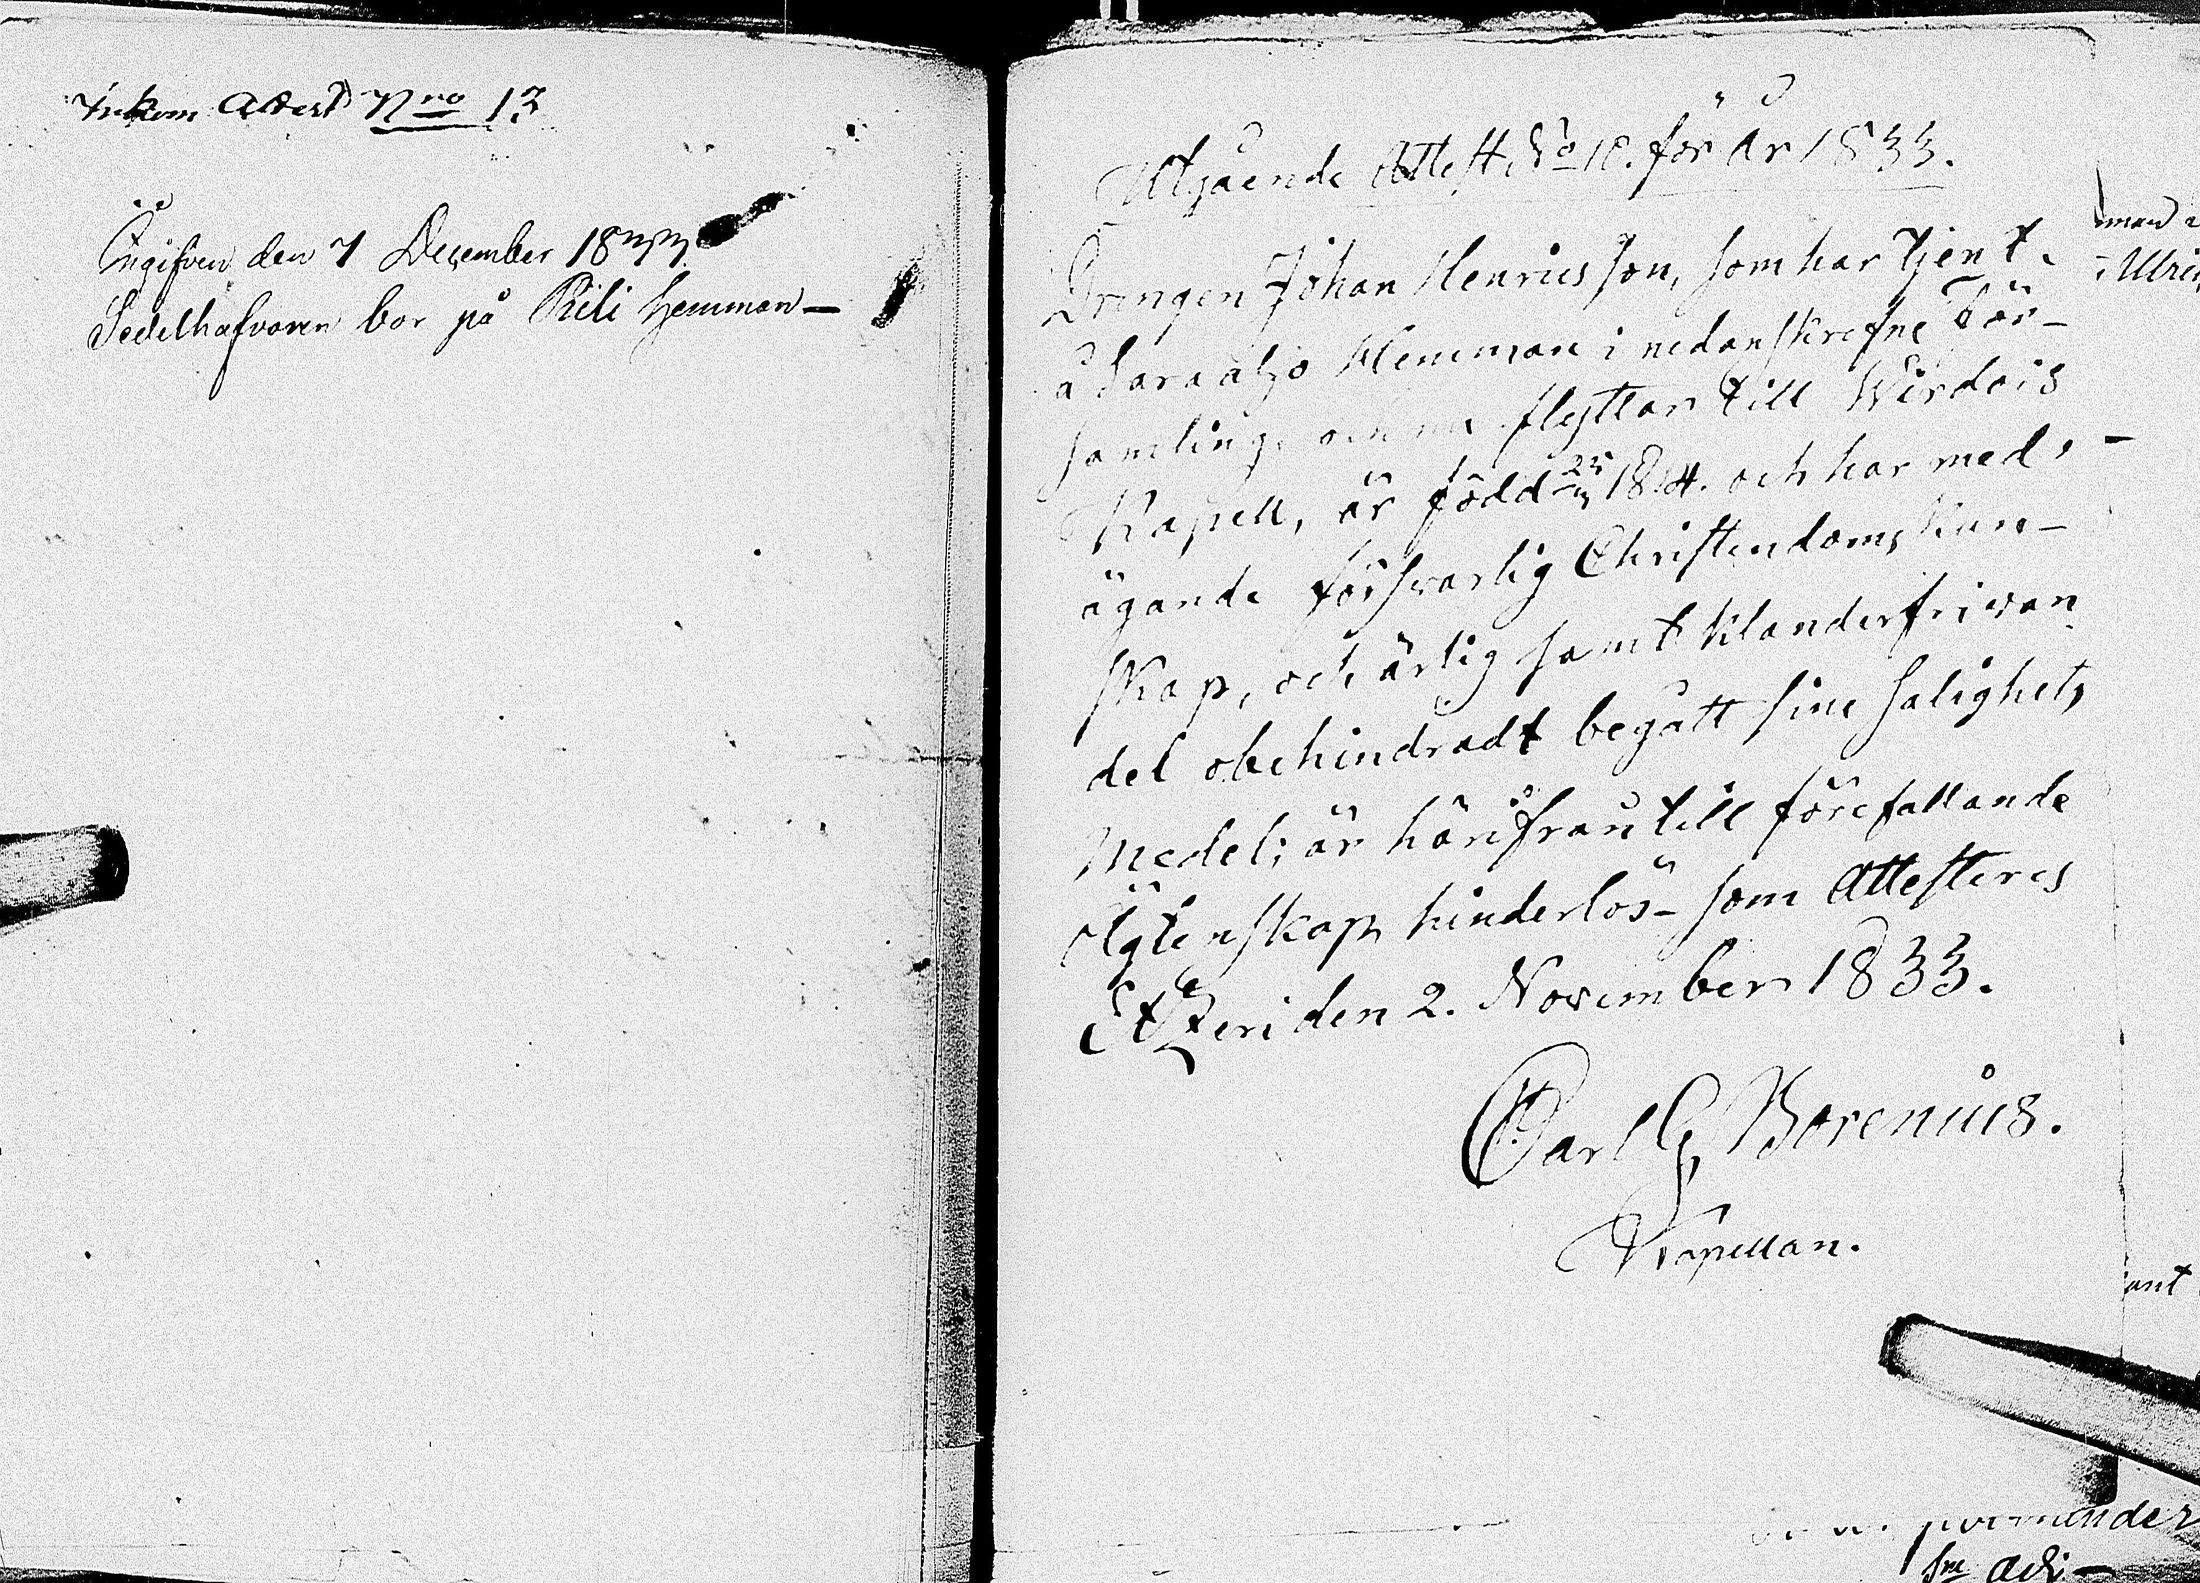 Inkom Attest Nro 13
Ingifven den 7 December 1833
Sedelhafvaren bor på Rili hemman —
Utgående Attest, No 10. för År 1833.
Drengen Johan Henricsson, som har tjent
å Haraaljo Hemman i nedanskrefne För-
samling, och nu flyttar till Wirdois
Kapell, är född 25 18 4. och har med-
ägande försvarlig Christendoms kun-
skap, och ärlig samt klanderfri van
del obehindradt begått sine salighets
medel; är härifrån till förefallande
Ägtenskap hinderlös - som Attesteres
Etzeri den 2. November 1833.
Carl G Borenius.
Kapellan.